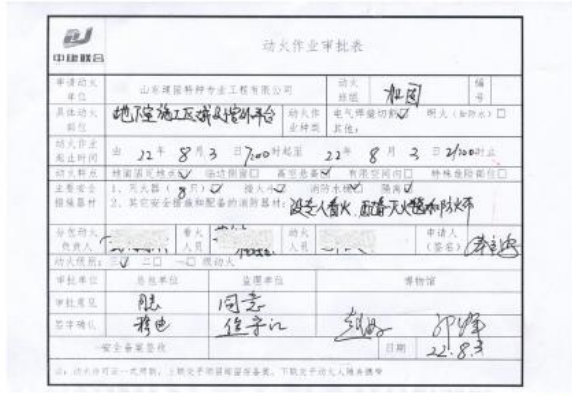 中建联合
动火作业审批表
申请动火单位 山东建固特种专业工程有限公司 动火班组 编号
具体动火部位 地下室施工区域及室外平台 动火作业种类 电气焊切割☑ 明火（如防水）□ 其他：
动火作业起止时间 由 22年 8月 3日 7:00时起至 22年 8月 3日 21:00时止
动火特点 地面固定地点☑ 临边侧面□ 高空悬 有限空间内□ 特殊危险部位□
主要安全措施器材 1、灭火器（8只）☑ 接火斗☑ 消防水 隔离☑
2、其它安全措施和配备的消防器材：设专人看火、配备灭火毯和防火布
分包动火负责人 看火人员 动火人员 申请人（签名）
动火级别：三☑ 二□ 一□ 级动火
审批单位 总包单位 监理单位 博物馆
审批意见 同意 同意
签字确认
安全备案签收 日期 22.8.3